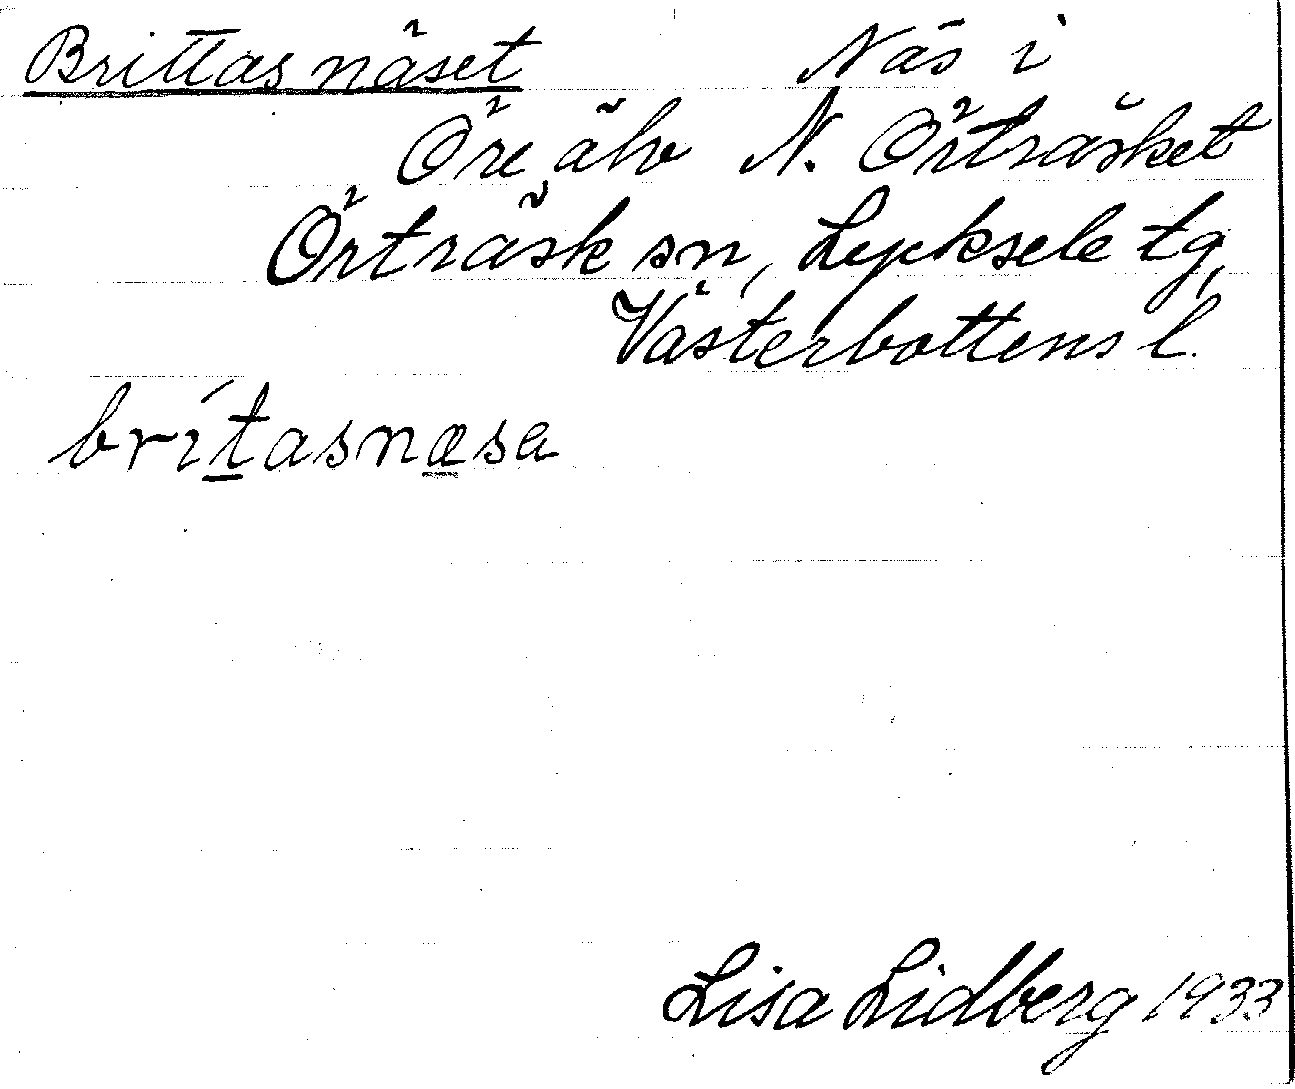 Brittasnäset Näs i
Öre älv N. Örträsket
Örträsk sn, Lycksele tg,
Västerbottens l.
brítasnæsa
Lisa Lidberg 1933